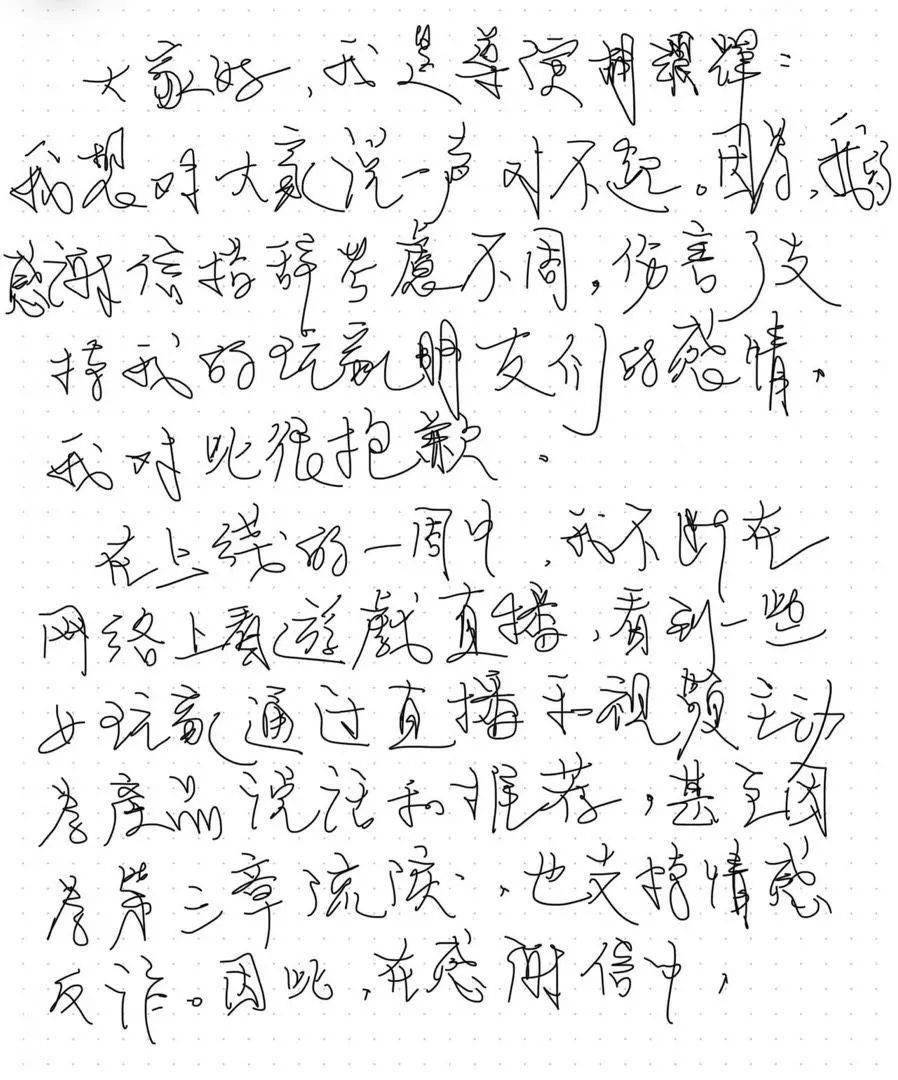 大家好，我是導演胡耀輝：
我想对大家说一声对不起。因为，我的
感謝信措辞考慮不周，伤害了支
持我的玩家朋友们的感情，
我对此很抱歉。
在上线的一周中，我不断在
网络上看遊戲直播，看到一些
女玩家通过直播和視頻主动
為產品说话和推荐，甚至因
為第三章流淚，也支持情感
反诈。因此，在感謝信中，